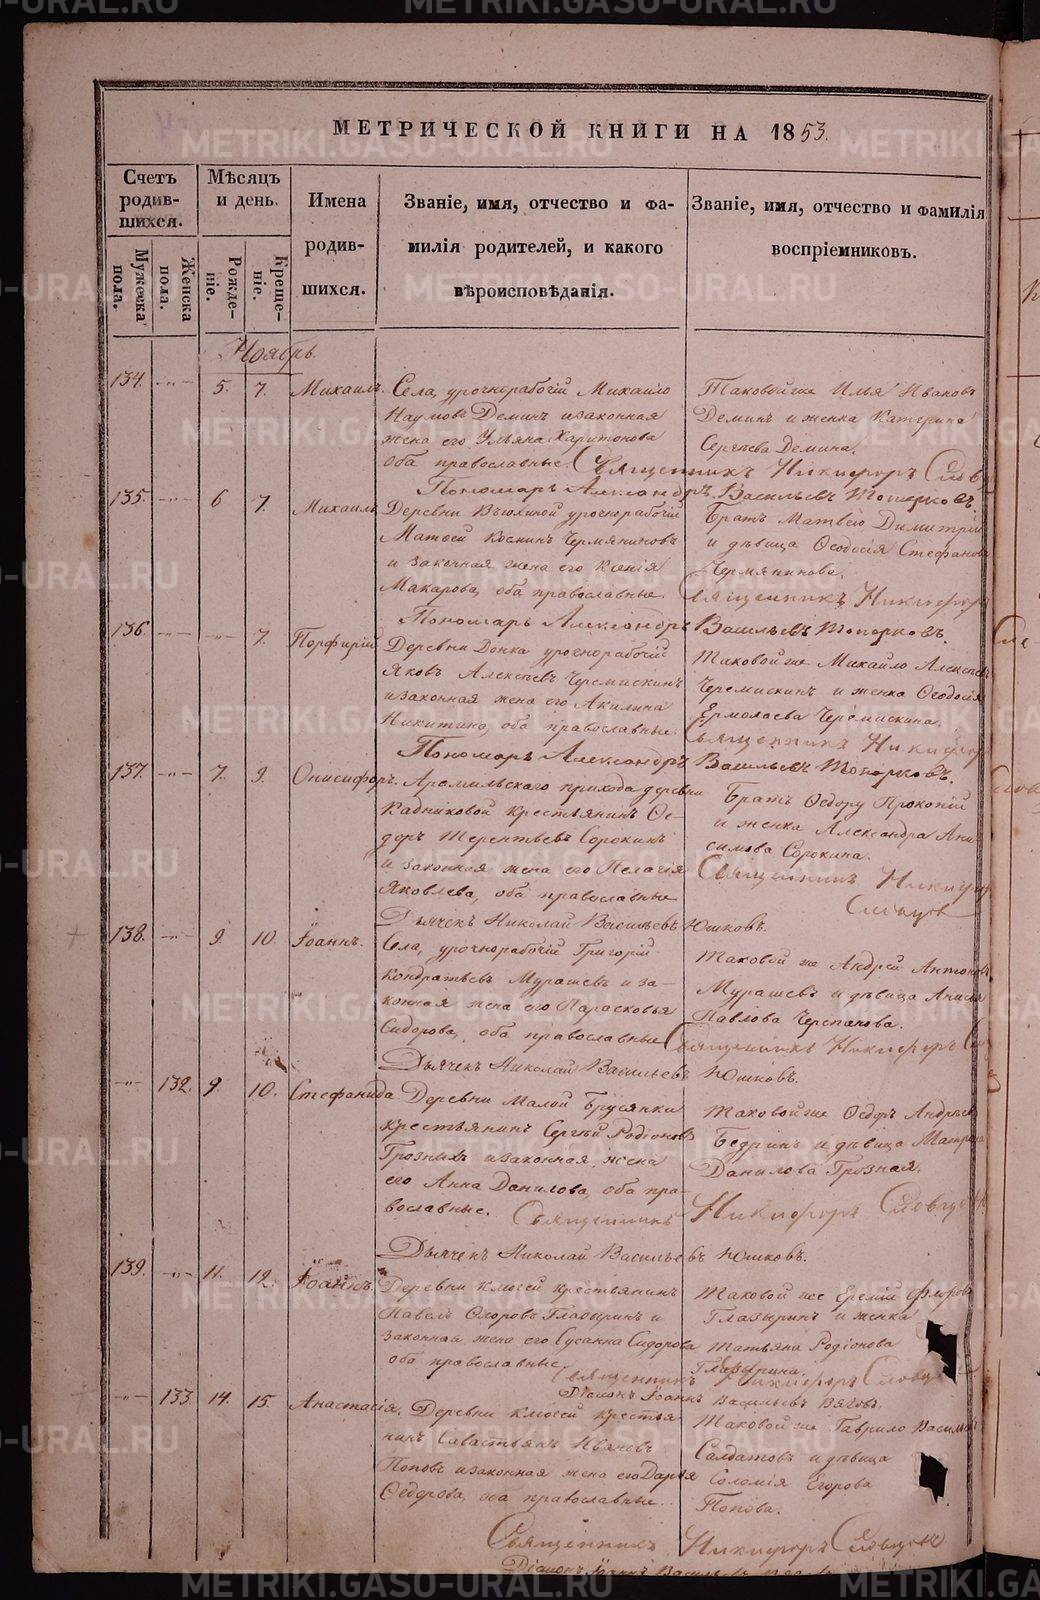 МЕТРИЧЕСКОЙ КНИГИ НА 1853.
Счетъ родив-шихся.
Мѣсяцъ и день.
Имена родив-шихся.
Званіе, имя, отчество и фа-
милія родителей, и какого
вѣроисповѣданія.
Званіе, имя, отчество и фамилія
воспріемниковъ.
Мужеска пола.
Женска пола.
Рожде-ніе.
Креще-ніе.
Ноябрь.
134. -"- 5. 7. Михаилъ.
Села, урочнорабочій Михайло
Наумовъ Деминъ и законная
жена его Ульяна Харитонова
оба православные.
Таковой же Илья Ивановъ
Деминъ и женка Катерина
Сергѣева Демина.
Священникъ Никифоръ
Пономарь Александръ Васильевъ Топорковъ.
135. -"- 6 7. Михаилъ
Деревни урочнорабочій
Матвей Козминъ Чермяниновъ
и законная жена его Ксенія
Макарова, оба православные
Братъ Матвею Димитрій
и дѣвица Ѳеодосія Стефанова
Чермянинова.
Священникъ Никифоръ
Пономарь Александръ Васильевъ Топорковъ.
136. -"- -"- 7. Порфирій
Деревни урочнорабочій
Яковъ Алексѣевъ Черемискинъ
и законная жена его Акилина
Никитина, оба православные
Таковой же Михайло Алексѣевъ
Черемискинъ и женка Ѳеодосія
Ермолаева Черемискина.
Священникъ Никифоръ
Пономарь Александръ Васильевъ Топорковъ.
137. -"- 7. 9. Онисифоръ.
Арамильскаго прихода деревни
Кадниковой крестьянинъ Ѳе-
доръ Терентьевъ Сорокинъ
и законная жена его Пелагія
Яковлева, оба православные
Братъ Ѳедору Прокопій
и женка Александра Ани-
симова Сорокина.
Священникъ Никифоръ
Словцовъ
Дьячекъ Николай Васильевъ Юшковъ.
138. -"- 9. 10. Іоаннъ.
Села, урочнорабочій Григорій
Кондратьевъ Мурашевъ и за-
конная жена его Парасковья
Сидорова, оба православные
Таковой же Андрей Антоновъ
Мурашевъ и дѣвица
Павлова Черепанова.
Священникъ Никифоръ
Дьячекъ Николай Васильевъ Юшковъ.
-"- 132. 9. 10. Стефанида
Деревни Малой Брусянки
крестьянинъ Сергѣй Родіоновъ
Грозныхъ и законная жена
его Анна Данилова, оба пра-
вославные.
Таковой же Ѳедоръ Андреевъ
Бедринъ и дѣвица Матрена
Данилова Грозная.
Священникъ Никифоръ Словцовъ
Дьячекъ Николай Васильевъ Юшковъ.
139. -"- 11. 12. Іоаннъ.
Деревни Ключей крестьянинъ
Павелъ Глазыринъ и
законная жена его Сусанна Сидорова
оба православные
Таковой же Еремій Флоровъ
Глазыринъ и женка
Татьяна Родіонова
Глазырина.
Священникъ Никифоръ Словцовъ
Діаконъ Іоаннъ Васильевъ
-"- 133. 14. 15. Анастасія.
Деревни Ключей крестья
нинъ Савастьянъ Ивановъ
Поповъ и законная жена его Дарья
Ѳедорова, оба православные.
Таковой же Гаврило
Солдатовъ и дѣвица
Соломія Егорова
Попова.
Священникъ Никифоръ Словцовъ
Діаконъ Іоаннъ
METRIKI.GASO-URAL.RU